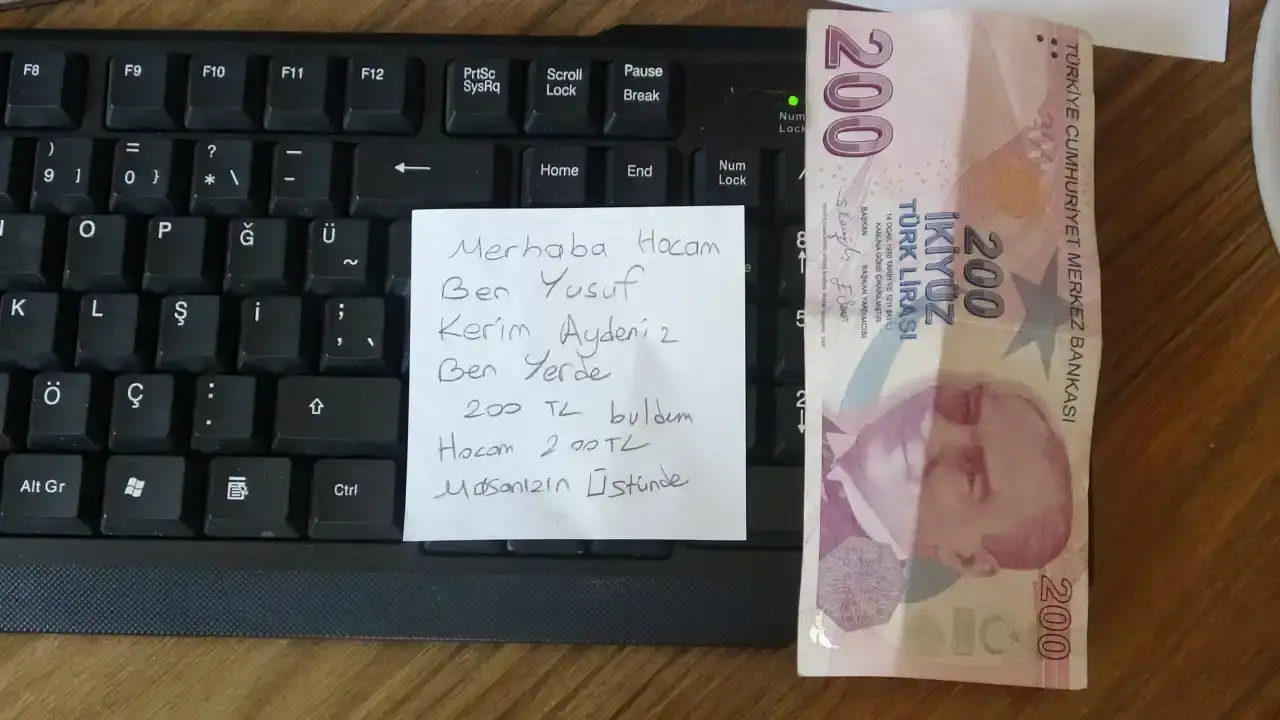 F8 F9 F10 F11 F12 PrtSc SysRq Scroll Lock Pause Break
Num Lock
) 9 ] = 0 } ? * \ – - ← Home End Num Lock /
O P Ğ Ü ~ 8 ↑
K L Ş İ ; , 5
Ö Ç : . ⇧ 2 ↓
Alt Gr Ctrl
Merhaba Hocam
Ben Yusuf
Kerim Aydeniz
Ben Yerde
200 TL buldum
Hocam 200TL
Masanızın Üstünde
TÜRKİYE CUMHURİYET MERKEZ BANKASI
200
200
İKİYÜZ
TÜRK LİRASI
14 OCAK 1970 TARİH VE 1211 SAYILI
KANUNA GÖRE ÇIKARILMIŞTIR.
BAŞKAN BAŞKAN YARDIMCISI
200